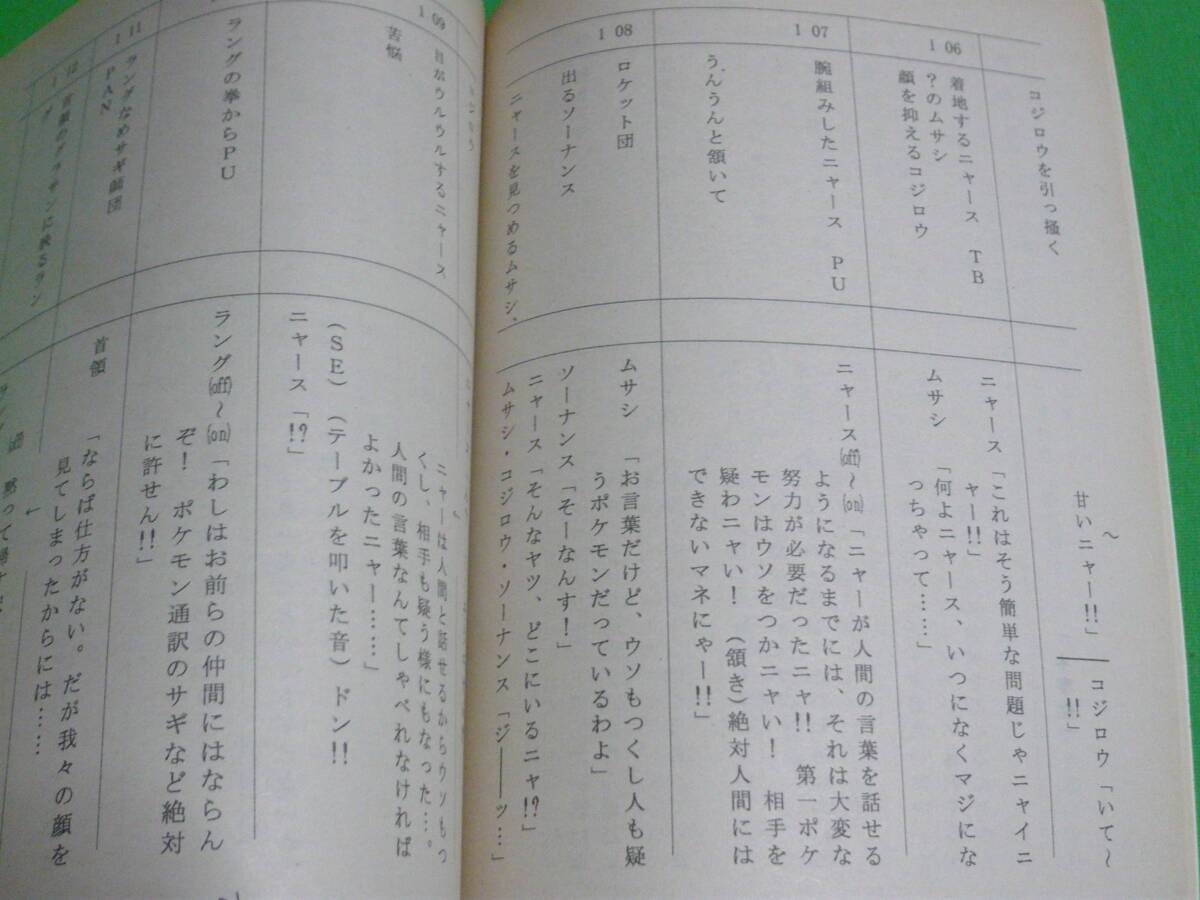 コジロウを引っ掻く
甘いニャー!!」――コジロウ「いて〜
〜
!!」
106
着地するニャース　TB
?のムサシ
顔を抑えるコジロウ
ニャース「これはそう簡単な問題じゃニャイニ
ャー!!」
ムサシ　「何よニャース、いつになくマジにな
っちゃって……」
107
腕組みしたニャース　PU
うんうんと頷いて
ニャース(off)〜(on)「ニャーが人間の言葉を話せる
ようになるまでには、それは大変な
努力が必要だったニャ!!　第一ポケ
モンはウソをつかニャい！　相手を
疑わニャい！　（頷き）絶対人間には
できないマネにゃー!!」
108
ロケット団
出るソーナンス
ムサシ　「お言葉だけど、ウソもつくし人も疑
うポケモンだっているわよ」
ソーナンス「そーなんす！」
ニャース「そんなヤツ、どこにいるニャ!?」
ニャースを見つめるムサシ、
ムサシ・コジロウ・ソーナンス「ジ――ッ…」
109
目がウルウルするニャース
苦悩
ニャーは人間と話せるからウソもつ
くし、相手も疑う様にもなった…。
人間の言葉なんてしゃべれなければ
よかったニャー……」
（SE）（テーブルを叩いた音）ドン!!
ニャース「!?」
ラングの拳からPU
ラング(off)〜(on)「わしはお前らの仲間にはならん
ぞ！　ポケモン通訳のサギなど絶対
に許せん!!」
111
ラングなめサギ師団
PAN
首領　「ならば仕方がない。だが我々の顔を
見てしまったからには……
112
首領のグラサンに映るラン
グ
←
(off)